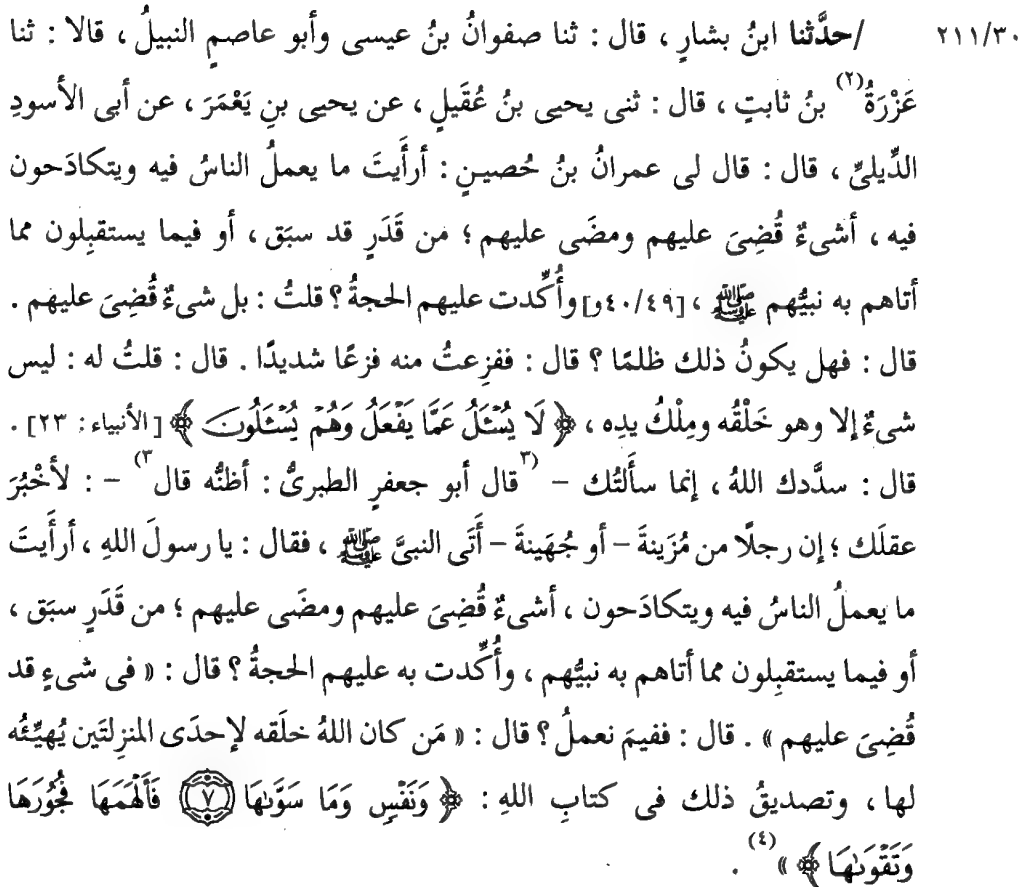 ٢١١/٣٠ /حدَّثنا ابنُ بشارٍ ، قال : ثنا صفوانُ بنُ عيسى وأبو عاصمٍ النبيلُ ، قالا : ثنا
عَزْرَةُ(٢) بنُ ثابتٍ ، قال : ثنى يحيى بنُ عُقَيلٍ ، عن يحيى بنِ يَعْمَرَ ، عن أبى الأسودِ
الدِّيلىِّ ، قال : قال لى عمرانُ بنُ حُصينٍ : أرأَيتَ ما يعملُ الناسُ فيه ويتكادَحون
فيه ، أشىءٌ قُضِىَ عليهم ومضَى عليهم ؛ من قَدَرٍ قد سبَق ، أو فيما يستقبِلون مما
أتاهم به نبيُّهم ﷺ ، [٤٠/٤٩و] وأُكِّدت عليهم الحجةُ ؟ قلتُ : بل شىءٌ قُضِىَ عليهم .
قال : فهل يكونُ ذلك ظلمًا ؟ قال : ففزِعتُ منه فزعًا شديدًا . قال : قلتُ له : ليس
شىءٌ إلا وهو خَلْقُه ومِلْكُ يدِه ، ﴿ لَا يُسْـَٔلُ عَمَّا يَفْعَلُ وَهُمْ يُسْـَٔلُونَ ﴾ [الأنبياء: ٢٣] .
قال : سدَّدك اللهُ ، إنما سأَلتُك – (٣قال أبو جعفرٍ الطبرىُّ : أظنُّه قال٣) – : لأَخْبُرَ
عقلَك ؛ إن رجلًا من مُزَينةَ – أو جُهَينةَ – أَتَى النبىَّ ﷺ ، فقال : يا رسولَ اللهِ ، أرأَيتَ
ما يعملُ الناسُ فيه ويتكادَحون ، أشىءٌ قُضِىَ عليهم ومضَى عليهم ؛ من قَدَرٍ سبَق ،
أو فيما يستقبِلون مما أتاهم به نبيُّهم ، وأُكِّدت به عليهم الحجةُ ؟ قال : « فى شىءٍ قد
قُضِىَ عليهم » . قال : ففيمَ نعملُ ؟ قال : « مَن كان اللهُ خلَقه لإحدَى المنزِلتَين يُهيِّئُه
لها ، وتصديقُ ذلك فى كتابِ اللهِ : ﴿ وَنَفْسٍ وَمَا سَوَّىٰهَا ٧ فَأَلْهَمَهَا فُجُورَهَا
وَتَقْوَىٰهَا ﴾ »(٤) .